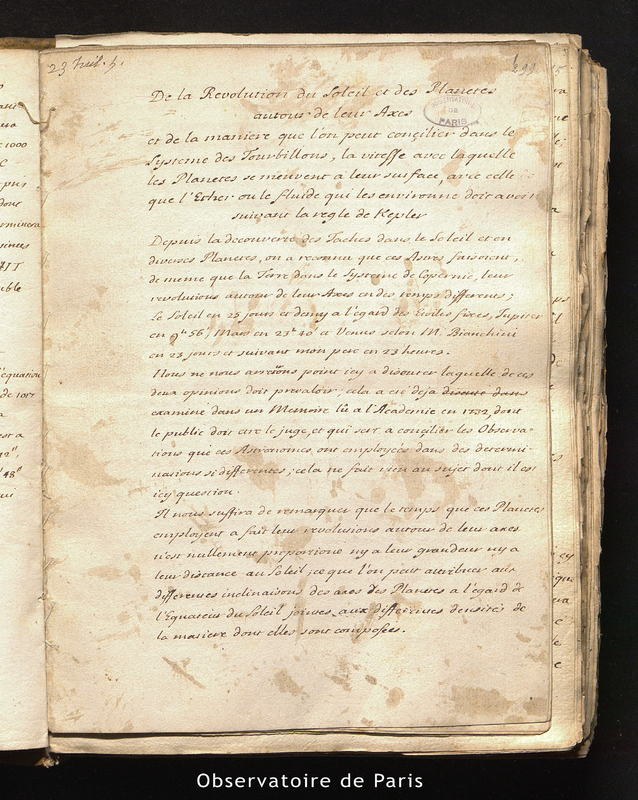 De la Revolution du Soleil et des Planetes
autour de leur Axes
et de la maniere que l'on peut conçilier dans le
Systeme des Tourbillons, la vitesse avec laquelle
les Planetes se meuvent a leur surface, avec celle
que l'Ether ou le fluide qui les environne doit avoir
suivant la regle de Kepler
Depuis la decouverte des Taches dans le Soleil et en
diverses Planetes, on a reconnu que ces Astres faisoient,
de meme que la Terre dans le Systeme de Copernic, leur
revolutions autour de leur Axes en des temps differens;
Le Soleil en 25 jours et demy a l'égard des Etoiles fixes, Jupiter
en 9h 56', Mars en 23h 40' et Venus selon M. Bianchini
en 23 jours et suivant mon pere en 23 heures.
Nous ne nous arretons point icy a discuter laquelle de ces
deux opinions doit prevaloir; cela a eté deja discuté dans
examiné dans un Memoire lû a l'Academie en 1732, dont
le public doit etre le juge, et qui sert a conçilier les Observa-
tions que ces Astronomes ont employées dans des determi-
nations si differentes; cela ne fait rien au sujet dont il est
icy question.
Il nous suffira de remarquer que le temps que ces Planetes
employent a fait leur revolutions autour de leur axes
n'est nullement proportioné ny a leur grandeur ny a
leur distance au Soleil, ce que l'on peut attribuer aux
differentes inclinaisons des axes des Planetes a l'égard de
l'Equateur du Soleil jointes aux differentes densités de
la matiere dont elles sont composées.
OBSERVATOIRE
DE
PARIS
Observatoire de Paris